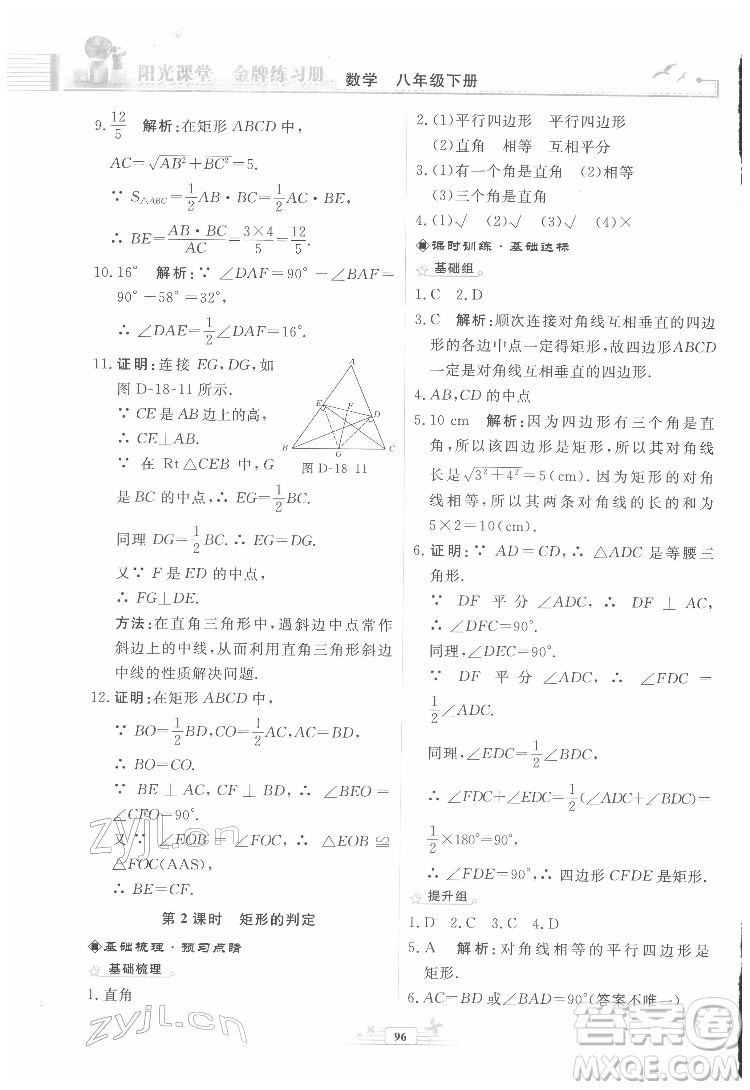 阳光课堂 金牌练习册 数学 八年级下册
9. 12/5 解析:在矩形 ABCD 中,
AC=√(AB²+BC²)=5.
∵ S△ABC=1/2 AB·BC=1/2 AC·BE,
∴ BE=(AB·BC)/AC=(3×4)/5=12/5.
10. 16° 解析:∵ ∠DAF=90°-∠BAF=
90°-58°=32°,
∴ ∠DAE=1/2∠DAF=16°.
11. 证明:连接 EG,DG,如
图 D-18-11 所示.
∵ CE 是 AB 边上的高,
∴ CE⊥AB.
∵ 在 Rt△CEB 中,G
是 BC 的中点,∴ EG=
1/2BC.
同理 DG=1/2BC.∴ EG=DG.
又∵ F 是 ED 的中点,
∴ FG⊥DE.
方法:在直角三角形中,遇斜边中点常作
斜边上的中线,利用直角三角形斜边
中线的性质解决问题.
A
E
F
D
B
G
C
图 D-18-11
12. 证明:在矩形 ABCD 中,
∵ BO=1/2BD,CO=1/2AC,AC=BD,
∴ BO=CO.
∵ BE⊥AC,CF⊥BD,∴ ∠BEO=
∠CFO=90°.
又∵ ∠EOB=∠FOC,∴ △EOB≌
△FOC(AAS).
∴ BE=CF.
第 2 课时 矩形的判定
基础梳理·预习点睛
基础梳理
1. 直角
2. (1)平行四边形 平行四边形
(2)直角 相等 互相平分
3. (1)有一个角是直角 (2)相等
(3)三个角是直角
4. (1)√ (2)√ (3)√ (4)×
课时训练·基础达标
基础组
1. C 2. D
3. C 解析:顺次连接对角线互相垂直的四边
形的各边中点一定得矩形,故四边形 ABCD
一定是对角线互相垂直的四边形.
4. AB,CD 的中点
5. 10 cm 解析:因为四边形有三个角是直
角,所以该四边形是矩形,所以其对角线
长是√(3²+4²)=5(cm).因为矩形的对角
线相等,所以其两条对角线的长的和为
5×2=10(cm).
6. 证明:∵ AD=CD,∴ △ADC 是等腰三
角形.
∵ DF 平分∠ADC,∴ DF⊥AC,
∴ ∠DFC=90°.
同理,∠DEC=90°.
∵ DF 平分∠ADC,∴ ∠FDC=
1/2∠ADC.
同理,∠EDC=1/2∠BDC,
∴ ∠FDC+∠EDC=1/2(∠ADC+∠BDC)=
1/2×180°=90°,
∴ ∠FDE=90°.∴ 四边形 CFDE 是矩形.
提升组
1. D 2. C 3. C 4. D
5. A 解析:对角线相等的平行四边形是
矩形.
6. AC=BD 或∠BAD=90°(答案不唯一)
96
zyjl.cn
zyjl.cn
答案圈
MXQE.COM